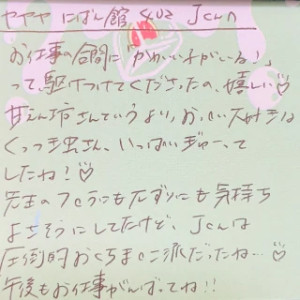 ヤヤヤ にばん館 402 Jくん
お仕事の合間に「かわいい子がいる!」
って、駆けつけてくださったの、嬉しい♡
甘えん坊さんていうより、おっぱい大好きな
くっつき虫さん、いっぱいぎゅーって
したね!♡
先生のフェラにもπずりにも気持ち
よさそうにしてたけど、Jくんは
圧倒的おくちま○こ派だったね…♡
午後もお仕事がんばってね!!